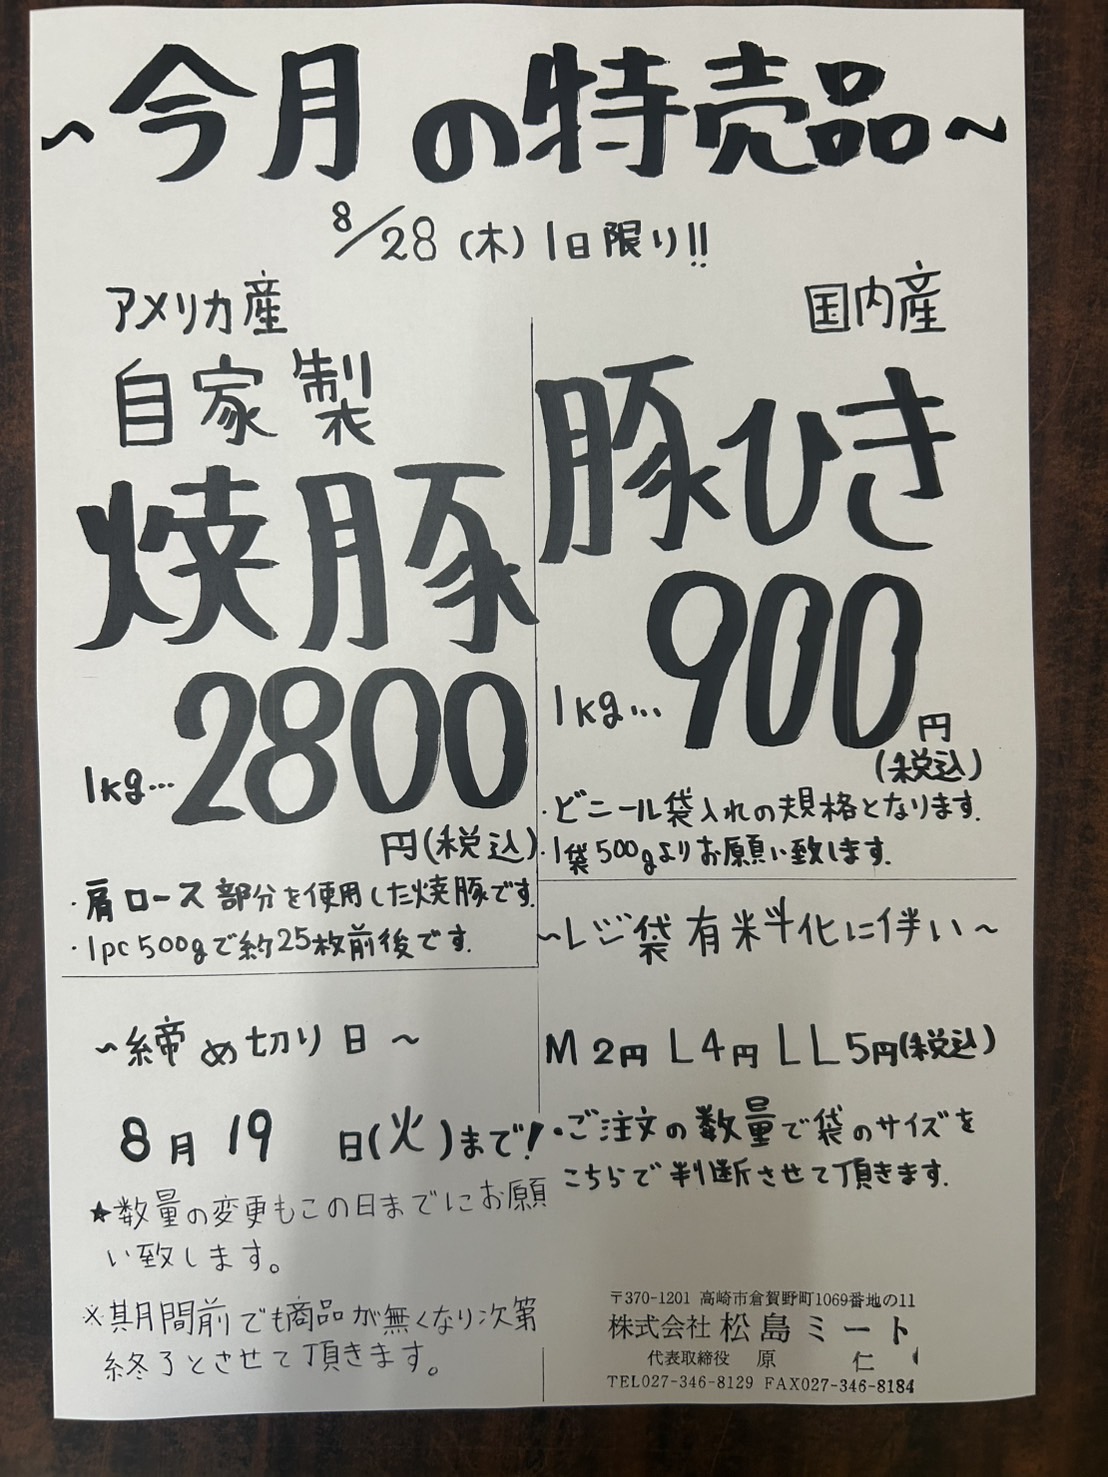 ~今月の特売品~
8/28(木)1日限り!!
アメリカ産
自家製
焼豚
1kg…2800
円(税込)
・肩ロース部分を使用した焼豚です.
・1pc500gで約25枚前後です.
国内産
豚ひき
1kg…900円
(税込)
・ビニール袋入れの規格となります.
・1袋500gよりお願い致します.
~レジ袋有料化に伴い~
M2円 L4円 LL5円(税込)
・ご注文の数量で袋のサイズを
こちらで判断させて頂きます.
~締め切り日~
8月19日(火)まで!
★数量の変更もこの日までにお願
い致します。
※期間前でも商品が無くなり次第
終了とさせて頂きます。
〒370-1201 高崎市倉賀野町1069番地の11
株式会社 松島ミート
代表取締役 原 仁
TEL027-346-8129 FAX027-346-8184